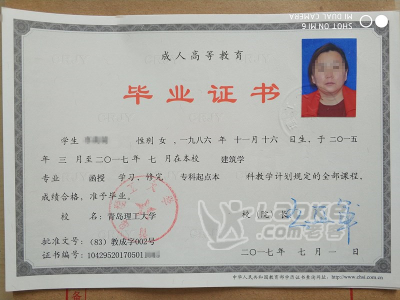 MI DUAL CAMERA
SHOT ON MI 6
成人高等教育
毕业证书
学生 性别 女，一九八六 年十一月十六日生，于二〇一五
年 三 月至二〇一七年 七 月在本校 建筑学
专业 函授 学习，修完 专科起点本 科教学计划规定的全部课程，
成绩合格，准予毕业。
校 名：青岛理工大学 校（院）长：
批准文号：（83）教成字002号
证书编号：10429520170501 二〇一七年 七 月 一 日
中华人民共和国教育部学历证书查询网址：http://www.chsi.com.cn